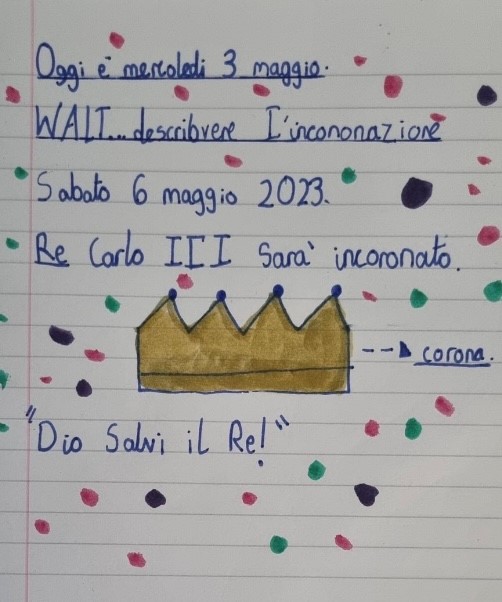 Oggi è mercoledi 3 maggio.
WALT...describvere I'incononazione
Sabato 6 maggio 2023.
Re Carlo III Sara' incoronato.
corona.
"Dio Salvi il Re!"